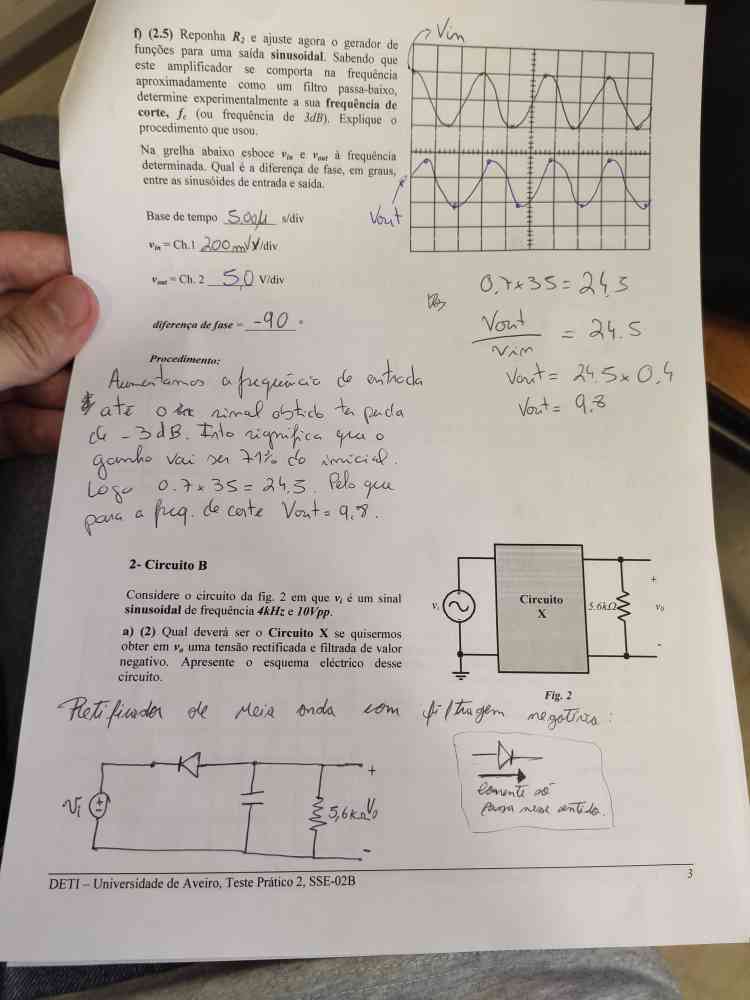 f) (2.5) Reponha R2 e ajuste agora o gerador de
funções para uma saída sinusoidal. Sabendo que
este amplificador se comporta na frequência
aproximadamente como um filtro passa-baixo,
determine experimentalmente a sua frequência de
corte, fc (ou frequência de 3dB). Explique o
procedimento que usou.
Na grelha abaixo esboce vin e vout à frequência
determinada. Qual é a diferença de fase, em graus,
entre as sinusóides de entrada e saída.
Vin
Vout
Base de tempo 5.00µ s/div
vin = Ch.1 200m V/div
vout = Ch. 2 5,0 V/div
diferença de fase = -90 °
0.7 x 35 = 24.5
Vout / Vin = 24.5
Vout = 24.5 x 0.4
Vout = 9.8
Procedimento:
Aumentamos a frequência de entrada
até o sinal obtido ter perda
de -3dB. Isto significa que o
ganho vai ser 71% do inicial.
Logo 0.7 x 35 = 24.5. Pelo que
para a freq. de corte Vout = 9.8.
2- Circuito B
Considere o circuito da fig. 2 em que vi é um sinal
sinusoidal de frequência 4kHz e 10Vpp.
a) (2) Qual deverá ser o Circuito X se quisermos
obter em vo uma tensão rectificada e filtrada de valor
negativo. Apresente o esquema eléctrico desse
circuito.
vi
Circuito
X
5.6kΩ
+
vo
-
Fig. 2
Retificador de meia onda com filtragem negativa:
Vi
+
-
5,6kΩ
+
Vo
-
Corrente só
passa nesse sentido.
DETI – Universidade de Aveiro, Teste Prático 2, SSE-02B
3